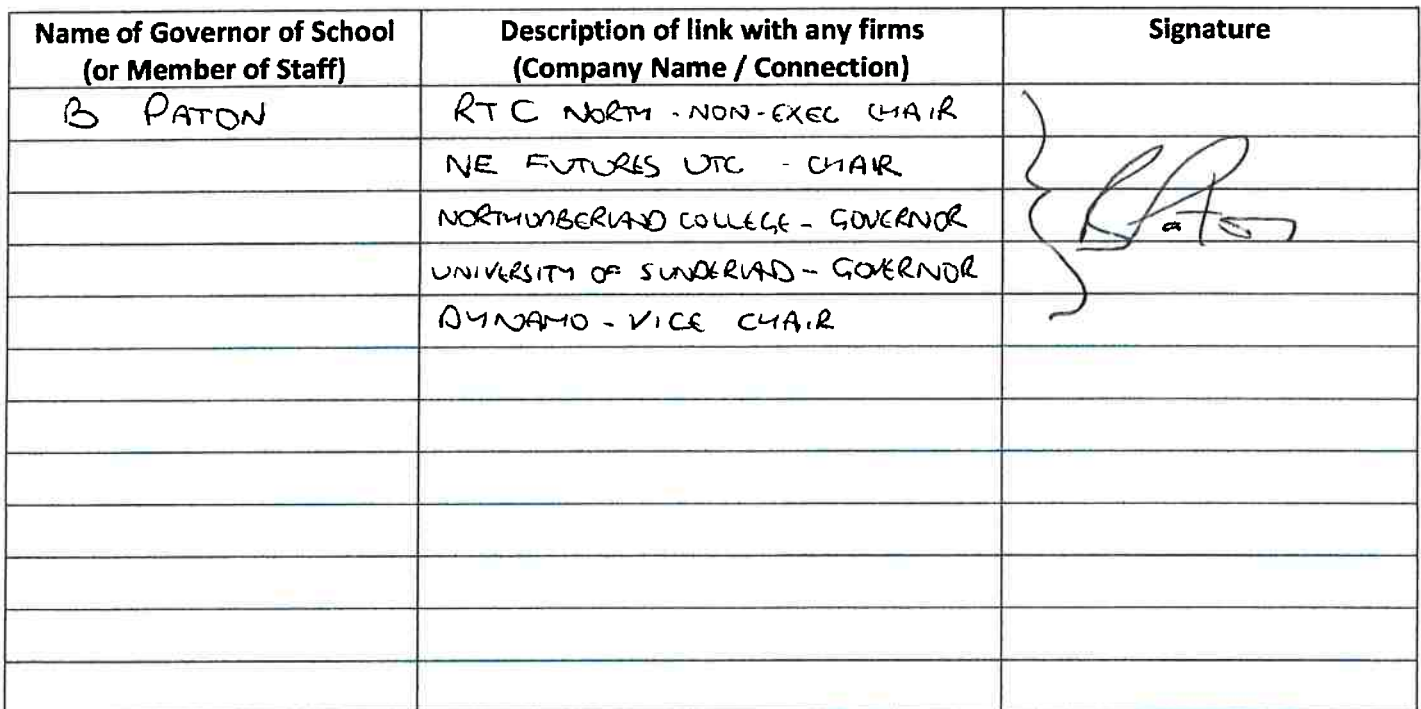 Name of Governor of School
(or Member of Staff)
Description of link with any firms
(Company Name / Connection)
Signature
B PATON
RTC NORTH - NON-EXEC CHAIR
NE FUTURES UTC - CHAIR
NORTHUMBERLAND COLLEGE - GOVERNOR
UNIVERSITY OF SUNDERLAND - GOVERNOR
DYNAMO - VICE CHAIR
B Paton